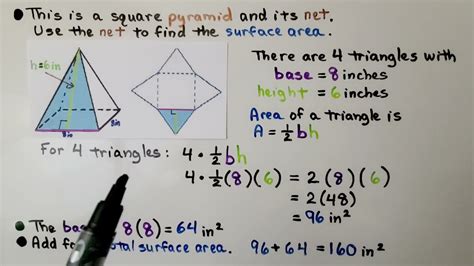 This is a square pyramid and its net.
Use the net to find the surface area.
h=6in
8in
8in
There are 4 triangles with
base = 8 inches
height = 6 inches
Area of a triangle is
A = ½bh
For 4 triangles: 4 · ½bh
4 · ½(8)(6) = 2(8)(6)
= 2(48)
= 96 in²
The bas 8(8) = 64 in²
Add fo tal surface area. 96 + 64 = 160 in²